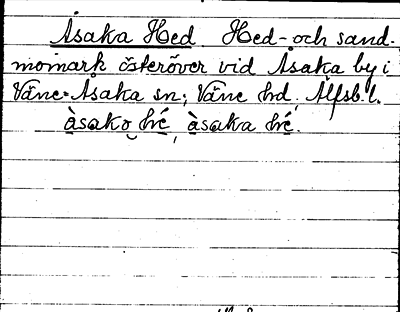 Åsaka Hed Hed- och sand-
momark österöver vid Åsaka by i
Väne-Åsaka sn; Väne hd, Älfsb. l.
àsako hé, àsaka hé.